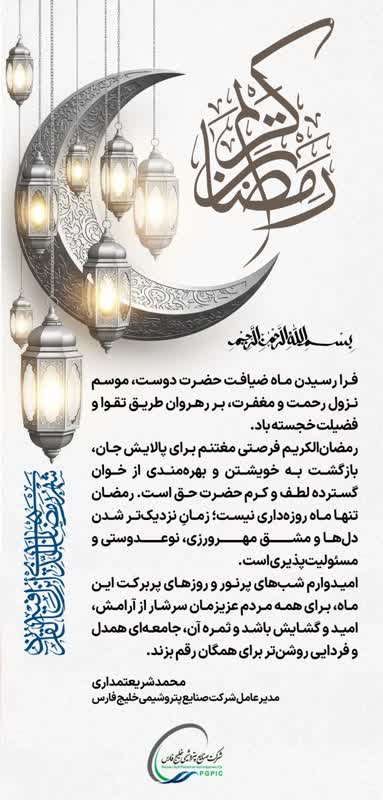 رمضان کریم
بسم الله الرحمن الرحیم
فرا رسیدن ماه ضیافت حضرت دوست، موسم
نزول رحمت و مغفرت، بر رهروان طریق تقوا و
فضیلت خجسته باد.
رمضان‌الکریم فرصتی مغتنم برای پالایش جان،
بازگشت به خویشتن و بهره‌مندی از خوان
گسترده لطف و کرم حضرت حق است. رمضان
تنها ماه روزه‌داری نیست؛ زمانِ نزدیک‌تر شدن
دل‌ها و مشق مهرورزی، نوعدوستی و
مسئولیت‌پذیری است.
امیدوارم شب‌های پرنور و روزهای پربرکت این
ماه، برای همه مردم عزیزمان سرشار از آرامش،
امید و گشایش باشد و ثمره آن، جامعه‌ای همدل
و فردایی روشن‌تر برای همگان رقم بزند.
محمد شریعتمداری
مدیرعامل شرکت صنایع پتروشیمی خلیج فارس
شهر رمضان الذی انزل فیه القرآن
شرکت صنایع پتروشیمی خلیج فارس
PGPIC